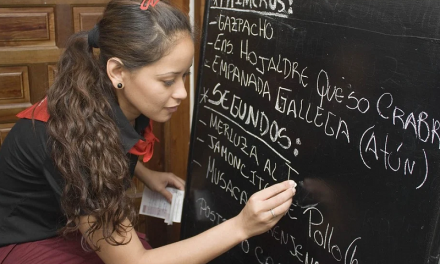 *PRIMEROS:
- GAZPACHO
- ENS. HOJALDRE QUESO CABR
- EMPANADA GALLEGA (ATÚN)
* SEGUNDOS:
- MERLUZA AL
- JAMONCITO POLLO
MUSACA
POST